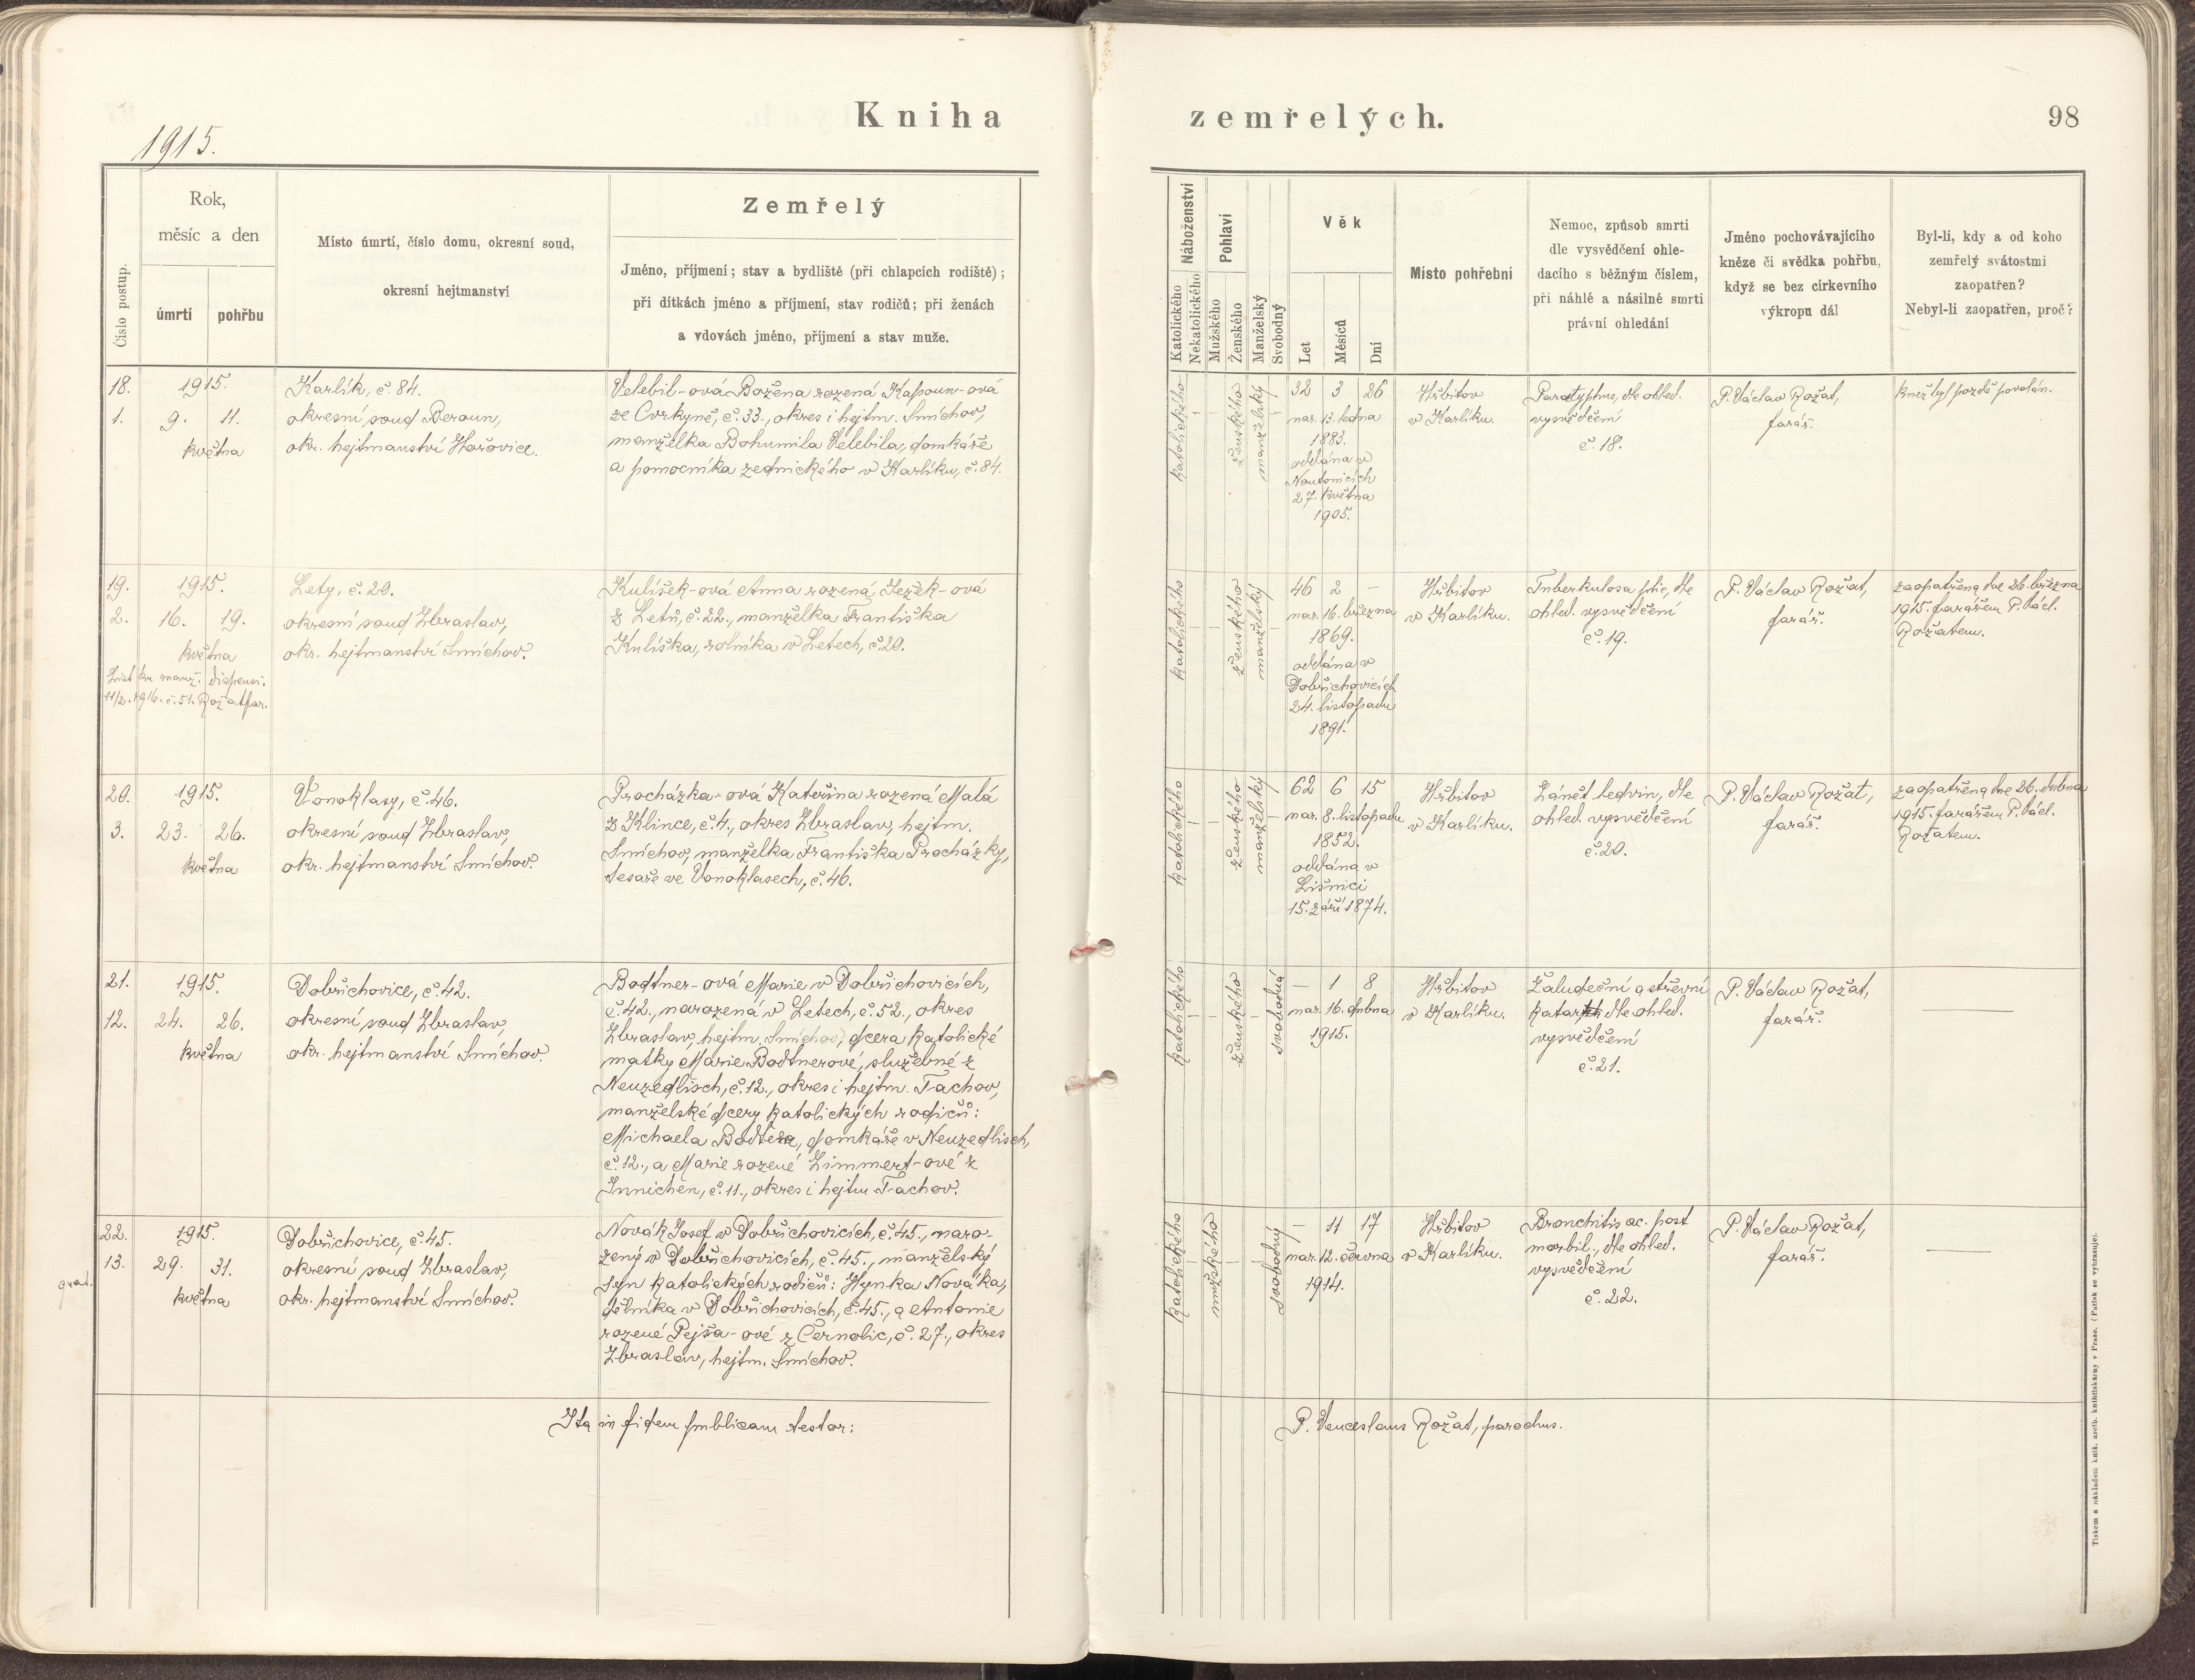 Kniha zemřelých.
98
1915.
Číslo postup.
Rok,
měsíc a den
úmrtí
pohřbu
Místo úmrtí, číslo domu, okresní soud,
okresní hejtmanství
Zemřelý
Jméno, příjmení; stav a bydliště (při chlapcích rodiště);
při dítkách jméno a příjmení, stav rodičů; při ženách
a vdovách jméno, příjmení a stav muže.
Náboženství
Katolického
Nekatolického
Pohlaví
Mužského
Ženského
Manželský
Svobodný
Věk
Let
Měsíců
Dní
Místo pohřební
Nemoc, způsob smrti
dle vysvědčení ohle-
dacího s běžným číslem,
při náhlé a násilné smrti
právní ohledání
Jméno pochovávajícího
kněze či svědka pohřbu,
když se bez církevního
výkropu dál
Byl-li, kdy a od koho
zemřelý svátostmi
zaopatřen?
Nebyl-li zaopatřen, proč?
18.
1.
1915.
9. 11.
května
Karlík, č. 84.
okresní soud Beroun,
okr. hejtmanství Hořovice.
Velebil-ová Božena rozená Kapoun-ová
ze Cvrkyně, č. 33., okres i hejtm. Smíchov,
manželka Bohumila Velebila, domkáře
a pomocníka zednického v Karlíku, č. 84.
katolického
—
—
ženského
manželský
—
32 3 26
nar. 13. ledna
1883.
oddána v
Noutonicích
27. května
1905.
Hřbitov
v Karlíku.
Paratyphus, dle ohled.
vysvědčení
č. 18.
P. Václav Rožat,
farář.
Kněz byl pozdě povolán.
19.
2.
1915.
16. 19.
května
List k manž. dispensi.
11/2. 1916. č. 51. Rožat far.
Lety, č. 20.
okresní soud Zbraslav,
okr. hejtmanství Smíchov.
Kulíšek-ová Anna rozená Ježek-ová
z Letů, č. 22., manželka Františka
Kulíška, rolníka v Letech, č. 20.
katolického
—
—
ženského
manželský
—
46 2 —
nar. 16. března
1869.
oddána v
Dobřichovicích
24. listopadu
1891.
Hřbitov
v Karlíku.
Tuberkulosa plic, dle
ohled. vysvědčení
č. 19.
P. Václav Rožat,
farář.
zaopatřena dne 26. března
1915. farářem P. Václ.
Rožatem.
20.
3.
1915.
23. 26.
května
Vonoklasy, č. 46.
okresní soud Zbraslav,
okr. hejtmanství Smíchov.
Procházka-ová Kateřina rozená Malá
z Klince, č. 4., okres Zbraslav, hejtm.
Smíchov, manželka Františka Procházky,
tesaře ve Vonoklasech, č. 46.
katolického
—
—
ženského
manželský
—
62 6 15
nar. 8. listopadu
1852.
oddána v
Líšnici
15. září 1874.
Hřbitov
v Karlíku.
Zánět ledvin, dle
ohled. vysvědčení
č. 20.
P. Václav Rožat,
farář.
zaopatřena dne 26. dubna
1915. farářem P. Václ.
Rožatem.
21.
12.
1915.
24. 26.
května
Dobřichovice, č. 42.
okresní soud Zbraslav,
okr. hejtmanství Smíchov.
Bodtner-ová Marie v Dobřichovicích,
č. 42., narozená v Letech, č. 52., okres
Zbraslav, hejtm. Smíchov, dcera katolické
matky Marie Bodtnerové, služebné z
Neuzedlisch, č. 12., okres i hejtm. Tachov,
manželské dcery katolických rodičů:
Michaela , domkáře v Neuzedlisch,
č. 12., a Marie rozené Zimmert-ové z
Innichen, č. 11., okres i hejtm Tachov.
katolického
—
—
ženského
svobodná
— 1 8
nar. 16. dubna
1915.
Hřbitov
v Karlíku.
Žaludeční a střevní
katar dle ohled.
vysvědčení
č. 21.
P. Václav Rožat,
farář.
—
22.
13.
1915.
29. 31.
května
Dobřichovice, č. 45.
okresní soud Zbraslav,
okr. hejtmanství Smíchov.
Novák Josef v Dobřichovicích, č. 45., naro-
zený v Dobřichovicích, č. 45., manželský
syn katolických rodičů: Hynka Nováka,
dělníka v Dobřichovicích, č. 45., a Antonie
rozené Pejša-ové z Černolic, č. 27., okres
Zbraslav, hejtm. Smíchov.
katolického
—
mužského
—
svobodný
— 11 17
nar. 12. června
1914.
Hřbitov
v Karlíku.
Bronchitis ac. post
morbil., dle ohled.
vysvědčení
č. 22.
P. Václav Rožat,
farář.
—
Ita in fidem publicam testor:
P. Venceslaus Rožat, parochus.
Tiskem a nákladem kníž. arcib. knihtiskárny v Praze. (Patisk se vyhrazuje).